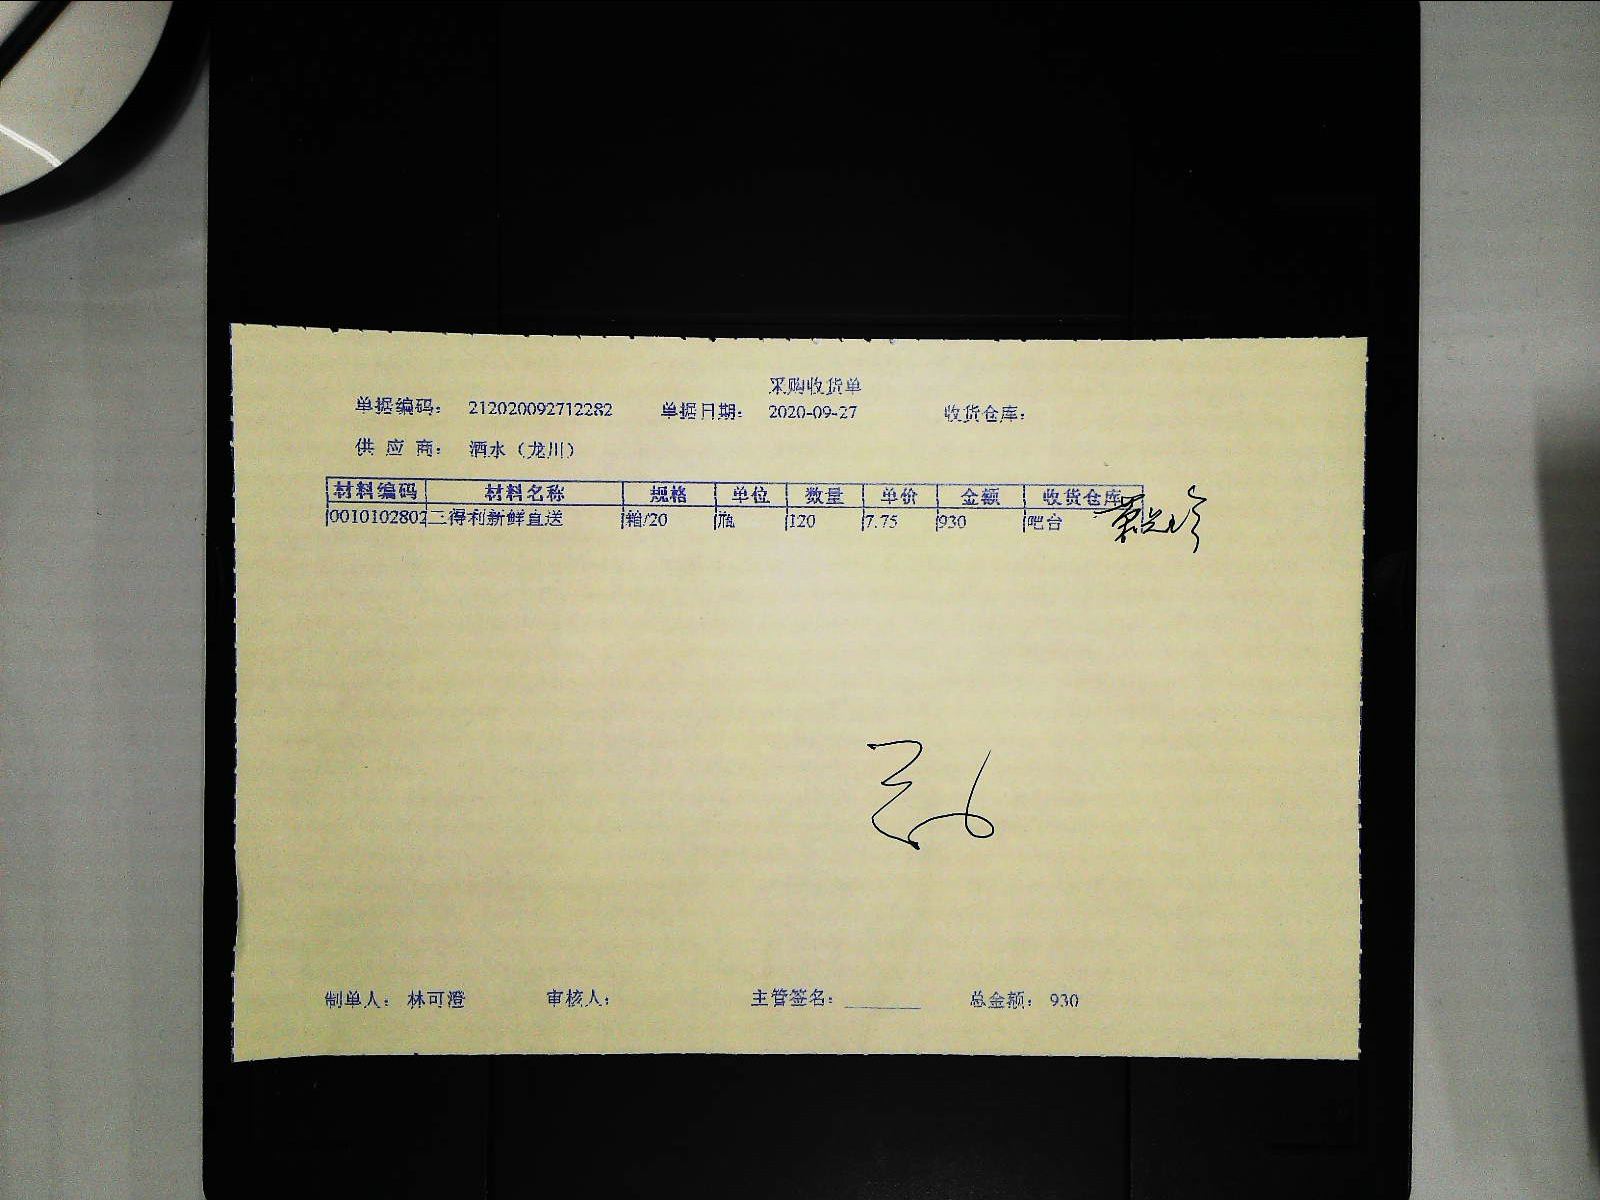 采购收货单
单据编码： 212020092712282 单据日期： 2020-09-27 收货仓库：
供 应 商： 酒水（龙川）
材料编码 材料名称 规格 单位 数量 单价 金额 收货仓库
0010102802 二得利新鲜直送 箱/20 瓶 120 7.75 930 吧台
制单人： 林可澄 审核人： 主管签名： 总金额： 930